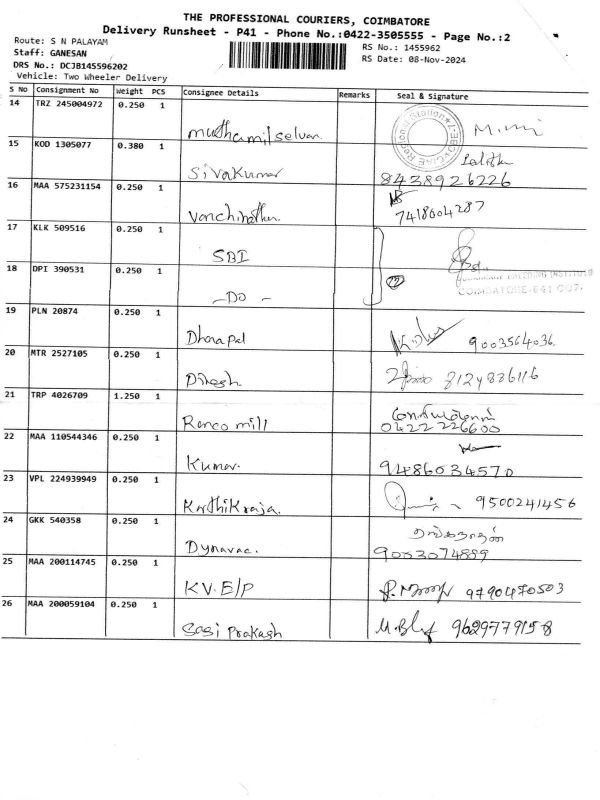 THE PROFESSIONAL COURIERS, COIMBATORE
Delivery Runsheet - P41 - Phone No.:0422-3505555 - Page No.:2
Route: S N PALAYAM
RS No.: 1455962
Staff: GANESAN
RS Date: 08-Nov-2024
DRS No.: DCJB145596202
Vehicle: Two Wheeler Delivery
S No Consignment No Weight PCS Consignee Details Remarks Seal & Signature
14 TRZ 245004972 0.250 1 muthamilselvan
15 KOD 1305077 0.380 1 Sivakumar 8438926226
16 MAA 575231154 0.250 1 Vanchinathan 7418604287
17 KLK 509516 0.250 1 SBI
18 DPI 390531 0.250 1 - DO -
COIMBATORE-641 007.
19 PLN 20874 0.250 1 Dhanapal 9003564036.
20 MTR 2527105 0.250 1 Dinesh 8124836116
21 TRP 4026709 1.250 1 Ranco mill 0422 226600
22 MAA 110544346 0.250 1 Kumar. 9486034570
23 VPL 224939949 0.250 1 Karthikraja. 9500241456
24 GKK 540358 0.250 1 Dynavac. 9003074899
25 MAA 200114745 0.250 1 KV.E/P 9790470503
26 MAA 200059104 0.250 1 Sasi Prakash 9629779158